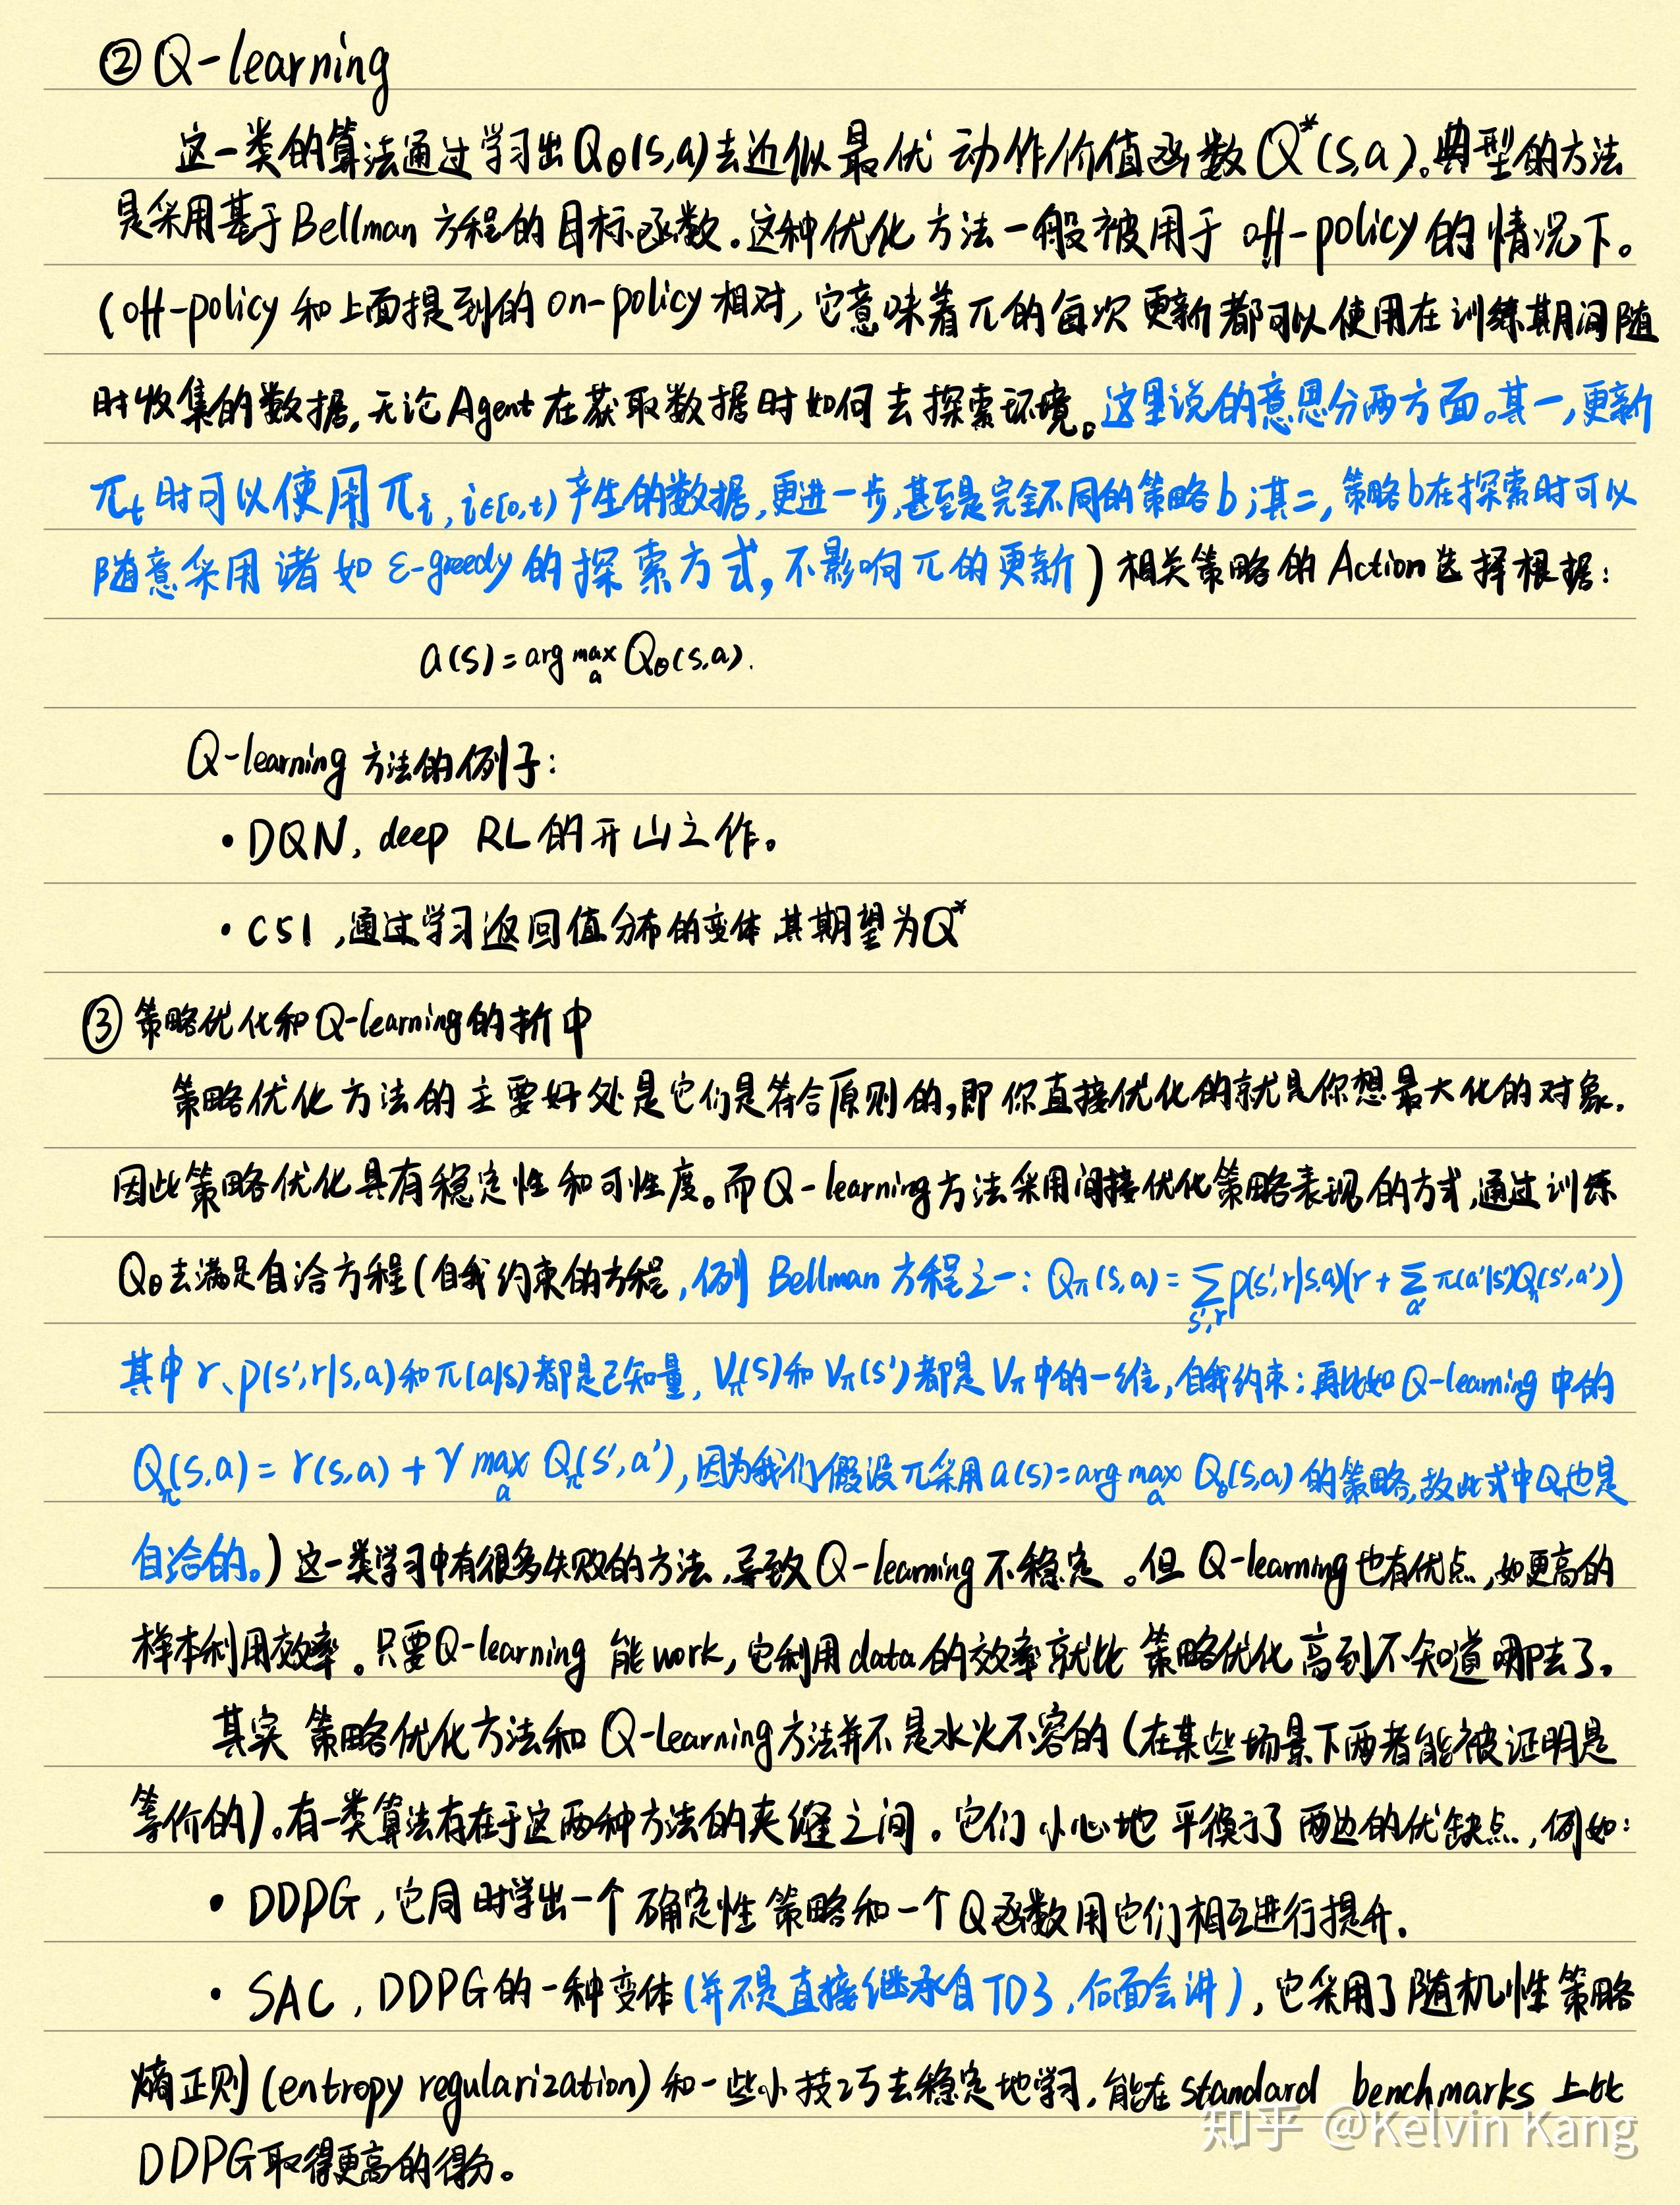 ② Q-learning
这一类的算法通过学习出Qθ(s,a)去近似最优动作价值函数Q*(s,a)。典型的方法
是采用基于Bellman方程的目标函数。这种优化方法一般被用于off-policy的情况下。
(off-policy和上面提到的on-policy相对,它意味着π的每次更新都可以使用在训练期间随
时收集的数据,无论Agent在获取数据时如何去探索环境。这里说的意思分两方面。其一,更新
πt时可以使用πi, i∈[0,t)产生的数据,更进一步,甚至是完全不同的策略b;其二,策略b在探索时可以
随意采用诸如ε-greedy的探索方式,不影响π的更新)相关策略的Action选择根据:
a(s)=arg max_a Qθ(s,a).
Q-learning方法的例子:
• DQN, deep RL的开山之作。
• C51,通过学习返回值分布的变体,其期望为Q*
③ 策略优化和Q-learning的折中
策略优化方法的主要好处是它们是符合原则的,即你直接优化的就是你想最大化的对象.
因此策略优化具有稳定性和可性度。而Q-learning方法采用间接优化策略表现的方式,通过训练
Qθ去满足自洽方程(自我约束的方程,例 Bellman方程之一: Qπ(s,a)=∑_{s',r} p(s',r|s,a)(r+∑_{a'} π(a'|s')Qπ(s',a'))
其中r、p(s',r|s,a)和π(a|s)都是已知量, Vπ(s)和Vπ(s')都是Vπ中的一维,自我约束;再比如Q-learning中的
Qπ(s,a)=r(s,a)+γ max_a Qπ(s',a'),因为我们假设π采用a(s)=arg max_a Qθ(s,a)的策略,故此式中Qπ也是
自洽的。)这一类学习中有很多失败的方法,导致Q-learning不稳定。但Q-learning也有优点,如更高的
样本利用效率。只要Q-learning能work,它利用data的效率就比策略优化高到不知道哪去了。
其实策略优化方法和Q-learning方法并不是水火不容的(在某些场景下两者能被证明是
等价的)。有一类算法存在于这两种方法的夹缝之间。它们小心地平衡了两边的优缺点,例如:
• DDPG,它同时学出一个确定性策略和一个Q函数用它们相互进行提升.
• SAC, DDPG的一种变体(并不是直接继承自TD3,后面会讲),它采用了随机性策略
熵正则(entropy regularization)和一些小技巧去稳定地学习,能在standard benchmarks上比
DDPG取得更高的得分。
知乎 @Kelvin Kang